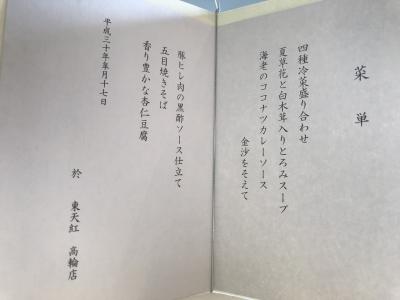 菜単
四種冷菜盛り合わせ
夏草花と白木茸入りとろみスープ
海老のココナツカレーソース
金沙をそえて
豚ヒレ肉の黒酢ソース仕立て
五目焼きそば
香り豊かな杏仁豆腐
平成三十年年月十七日
於 東天紅 高輪店